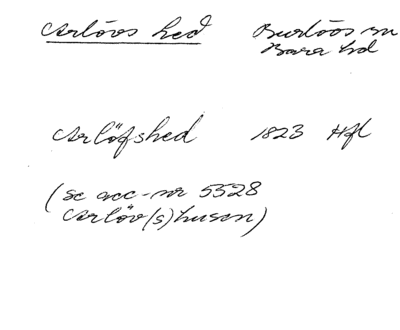 Arlövs hed Burlövs sn
Bara hd
Arlöfshed 1823 Hfl
(se acc-nr 5528
Arlöv(s)husen)